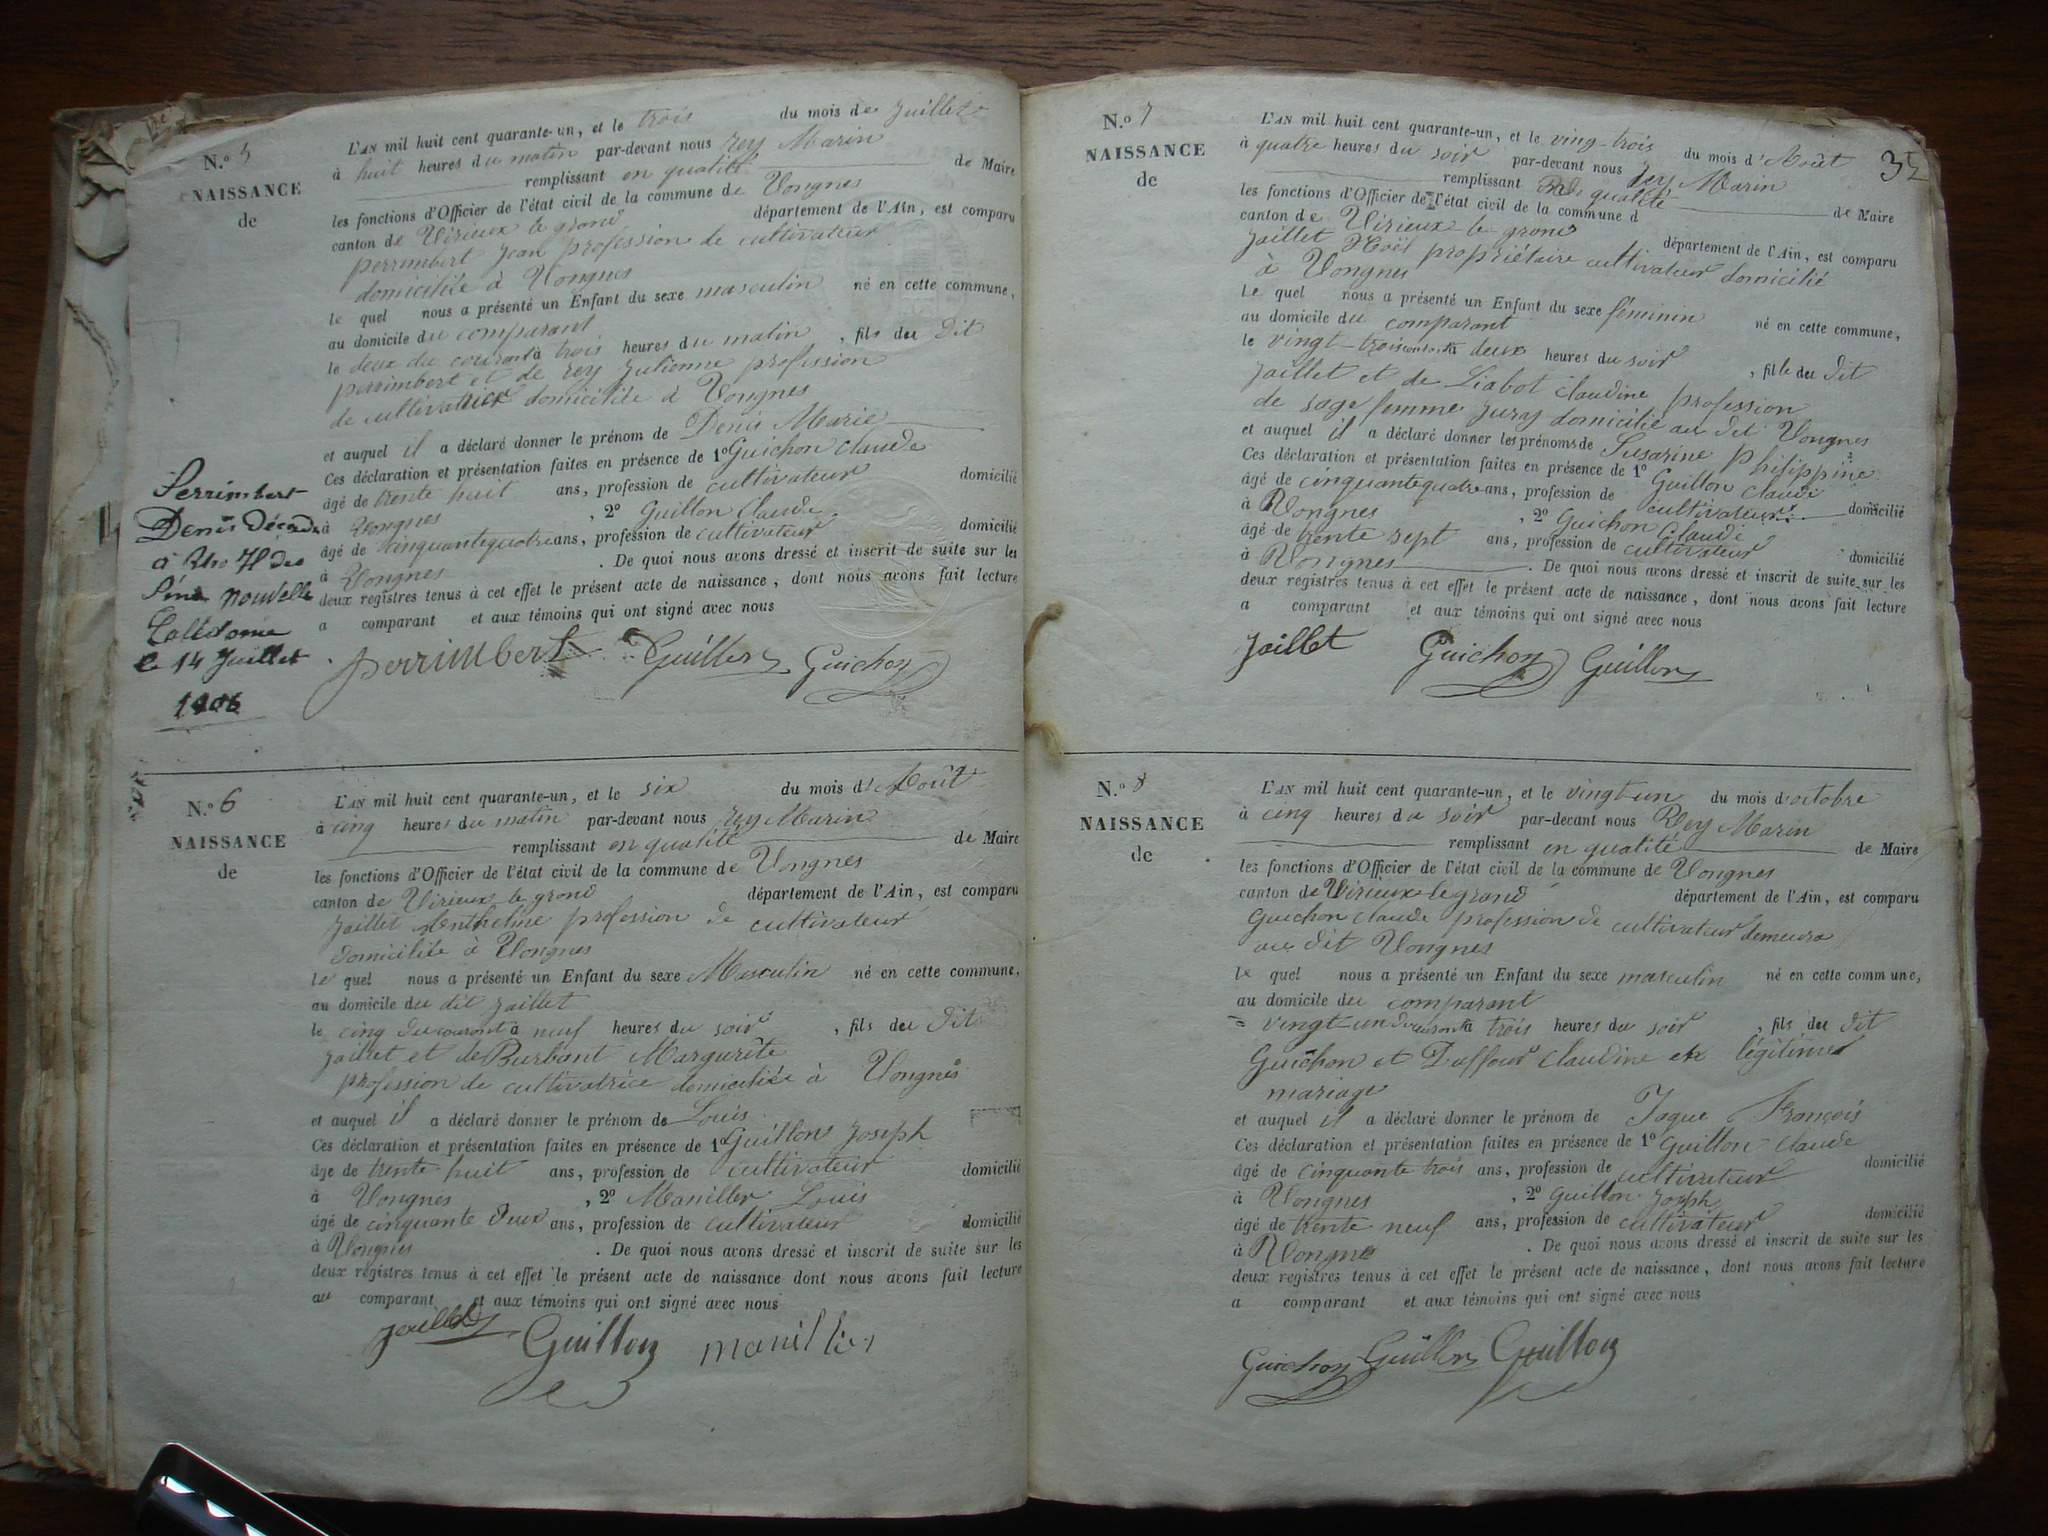 N.o 5
NAISSANCE
de
L'AN mil huit cent quarante-un, et le trois du mois de Juillet
à huit heures du matin par-devant nous rey Marin
remplissant en qualité de Maire
les fonctions d'Officier de l'état civil de la commune de Vongnes
canton de Virieux le grand département de l'Ain, est comparu
perrimbert Jean profession de cultivateur
domicilié à Vongnes
le quel nous a présenté un Enfant du sexe masculin né en cette commune,
au domicile du comparant
le deux du courant à trois heures du matin, fils du dit
perrimbert et de rey Julienne profession
de cultivatrice domicilié à Vongnes
et auquel il a déclaré donner le prénom de Denis Marie
Ces déclaration et présentation faites en présence de 1o Guichon Claude
âgé de trente huit ans, profession de cultivateur domicilié
à Vongnes, 2o Guillon Claude
âgé de cinquantequatre ans, profession de cultivateur domicilié
à Vongnes. De quoi nous avons dressé et inscrit de suite sur les
deux registres tenus à cet effet le présent acte de naissance, dont nous avons fait lecture
a comparant et aux témoins qui ont signé avec nous
perrimbert Guillon Guichon
Perrimbert
Denis Décédé
à
nouvelle
Calédonie
le 14 Juillet
1906
N.o 6
NAISSANCE
de
L'AN mil huit cent quarante-un, et le six du mois d'Août
à cinq heures du matin par-devant nous rey Marin
remplissant en qualité de Maire
les fonctions d'Officier de l'état civil de la commune de Vongnes
canton de Virieux le grand département de l'Ain, est comparu
Jaillet Anthelme profession de cultivateur
domicilié à Vongnes
le quel nous a présenté un Enfant du sexe Masculin né en cette commune,
au domicile du dit Jaillet
le cinq du courant à neuf heures du soir, fils du dit
Jaillet et de Burbant Margurite
profession de cultivatrice domiciliée à Vongnes
et auquel il a déclaré donner le prénom de Louis
Ces déclaration et présentation faites en présence de 1o Guillon Joseph
âgé de trente huit ans, profession de cultivateur domicilié
à Vongnes, 2o Manillier Louis
âgé de cinquante deux ans, profession de cultivateur domicilié
à Vongnes. De quoi nous avons dressé et inscrit de suite sur les
deux registres tenus à cet effet le présent acte de naissance dont nous avons fait lecture
au comparant et aux témoins qui ont signé avec nous
Jaillet Guillon manillier
35
N.o 7
NAISSANCE
de
L'AN mil huit cent quarante-un, et le ving-trois du mois d'Août
à quatre heures du soir par-devant nous rey Marin
remplissant qualité de Maire
les fonctions d'Officier de l'état civil de la commune d
canton de Virieux le grand département de l'Ain, est comparu
Jaillet Noël propriétaire cultivateur domicilié
à Vongnes
Le quel nous a présenté un Enfant du sexe féminin né en cette commune,
au domicile du comparant
le vingt-trois courant à deux heures du soir, fille du dit
Jaillet et de Liabot Claudine profession
de sage femme Jury domicilié au dit Vongnes
et auquel il a déclaré donner les prénoms de Susarine Philippine
Ces déclaration et présentation faites en présence de 1o Guillon Claude
âgé de cinquantequatre ans, profession de cultivateur domicilié
à Vongnes, 2o Guichon Claude
âgé de trente sept ans, profession de cultivateur domicilié
à Vongnes. De quoi nous avons dressé et inscrit de suite sur les
deux registres tenus à cet effet le présent acte de naissance, dont nous avons fait lecture
a comparant et aux témoins qui ont signé avec nous
Jaillet Guichon Guillon
N.o 8
NAISSANCE
de
L'AN mil huit cent quarante-un, et le vingt un du mois d'octobre
à cinq heures du soir par-devant nous Rey Marin
remplissant en qualité de Maire
les fonctions d'Officier de l'état civil de la commune de Vongnes
canton de Virieux le grand département de l'Ain, est comparu
Guichon Claude profession de cultivateur demeura
au dit Vongnes
le quel nous a présenté un Enfant du sexe masculin né en cette commune,
au domicile du comparant
= vingt-un du courant à trois heures du soir, fils du dit
Guichon et Duffour Claudine légitime
mariage
et auquel il a déclaré donner le prénom de Jaque François
Ces déclaration et présentation faites en présence de 1o Guillon Claude
âgé de cinquante trois ans, profession de cultivateur domicilié
à Vongnes, 2o Guillon Joseph
âgé de trente neuf ans, profession de cultivateur domicilié
à Vongnes. De quoi nous avons dressé et inscrit de suite sur les
deux registres tenus à cet effet le présent acte de naissance, dont nous avons fait lecture
a comparant et aux témoins qui ont signé avec nous
Guichon Guillon Guillon